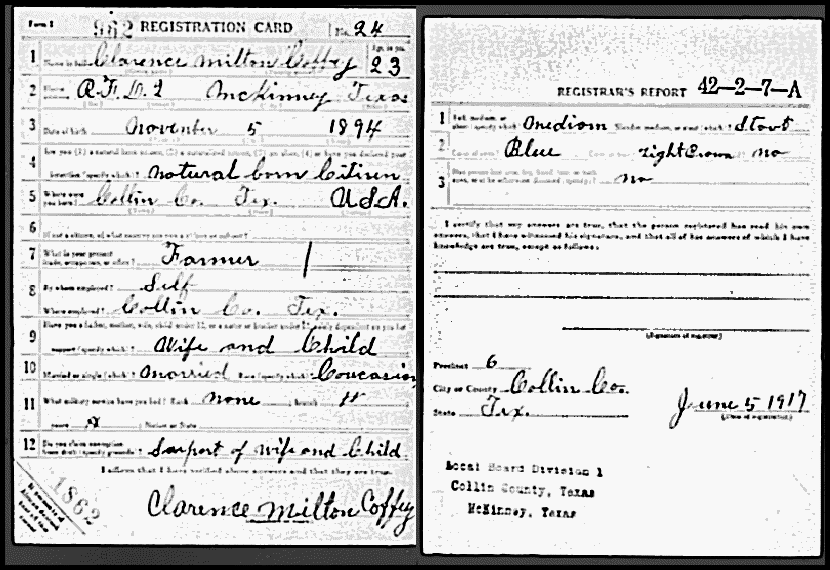 Form 1 962 REGISTRATION CARD No. 24
1 Clarence Milton Coffey Age, in yrs. 23
2 R.F.D. 2 McKinney Texas
3 Date of birth November 5 1894
4 Are you (1) a natural born citizen, (2) a naturalized citizen, (3) an alien, (4) or have you declared your
intention (specify which)? natural born Citizen
5 Where were you born? Collin Co. Tex. U.S.A.
6 If not a citizen, of what country are you a citizen or subject?
7 What is your present trade, occupation, or office? Farmer 1
8 By whom employed? Self
Where employed? Collin Co. Tex.
9 Have you a father, mother, wife, child under 12, or a sister or brother under 12, solely dependent on you for
support (specify which)? Wife and Child
10 Married or single (which)? Married Race (specify which)? Caucasion
11 What military service have you had? Rank None ; Branch
years ; Nation or State
12 Do you claim exemption from draft (specify grounds)? Saport of Wife and Child.
I affirm that I have verified above answers and that they are true.
1862
Clarence Milton Coffey
REGISTRAR'S REPORT 42-2-7-A
1 Tall, medium, or short (specify which)? Medium Slender, medium, or stout (which)? Stout
2 Color of eyes? Blue Color of hair? Light Brown No
3 No
I certify that my answers are true, that the person registered has read his own
answers, that I have witnessed his signature, and that all of his answers of which I have
knowledge are true, except as follows:
(Signature of registrar)
Precinct 6
City or County Collin Co.
State Tex.
June 5 1917
(Date of registration)
Local Board Division 1
Collin County, Texas
McKinney, Texas